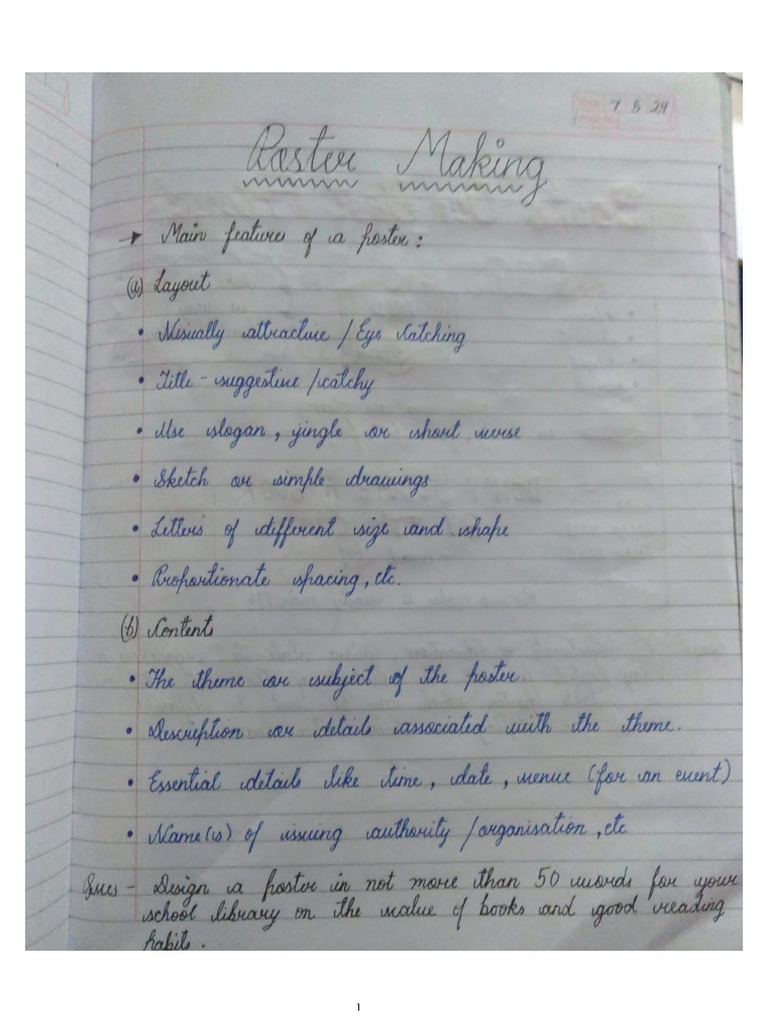 7 8 24
Poster Making
→ Main features of a poster :
(a) Layout
• Visually attractive / Eye Catching
• Title - suggestive / catchy
• Use slogan, jingle or short verse
• Sketch or simple drawings
• Letters of different size and shape
• Proportionate spacing, etc.
(b) Content
• The theme or subject of the poster.
• Description or details associated with the theme.
• Essential details like time, date, venue (for an event)
• Name(s) of issuing authority / organisation, etc
Ques - Design a poster in not more than 50 words for your
school library on the value of books and good reading
habits.
1